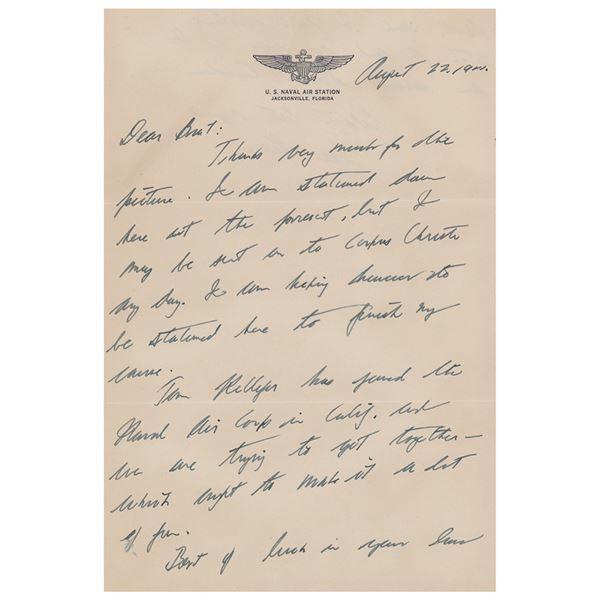 U. S. NAVAL AIR STATION
JACKSONVILLE, FLORIDA
August 22, 19
Dear Burt:
Thanks very much for the
picture. I am stationed down
here at the present, but I
may be sent on to Corpus Christi
any day. I am hoping however to
be stationed here to finish my
course.
Tom Killefer has joined the
Naval Air Corps in Calif. and
we are trying to get together—
which ought to make it a lot
of fun.
Best of luck in your